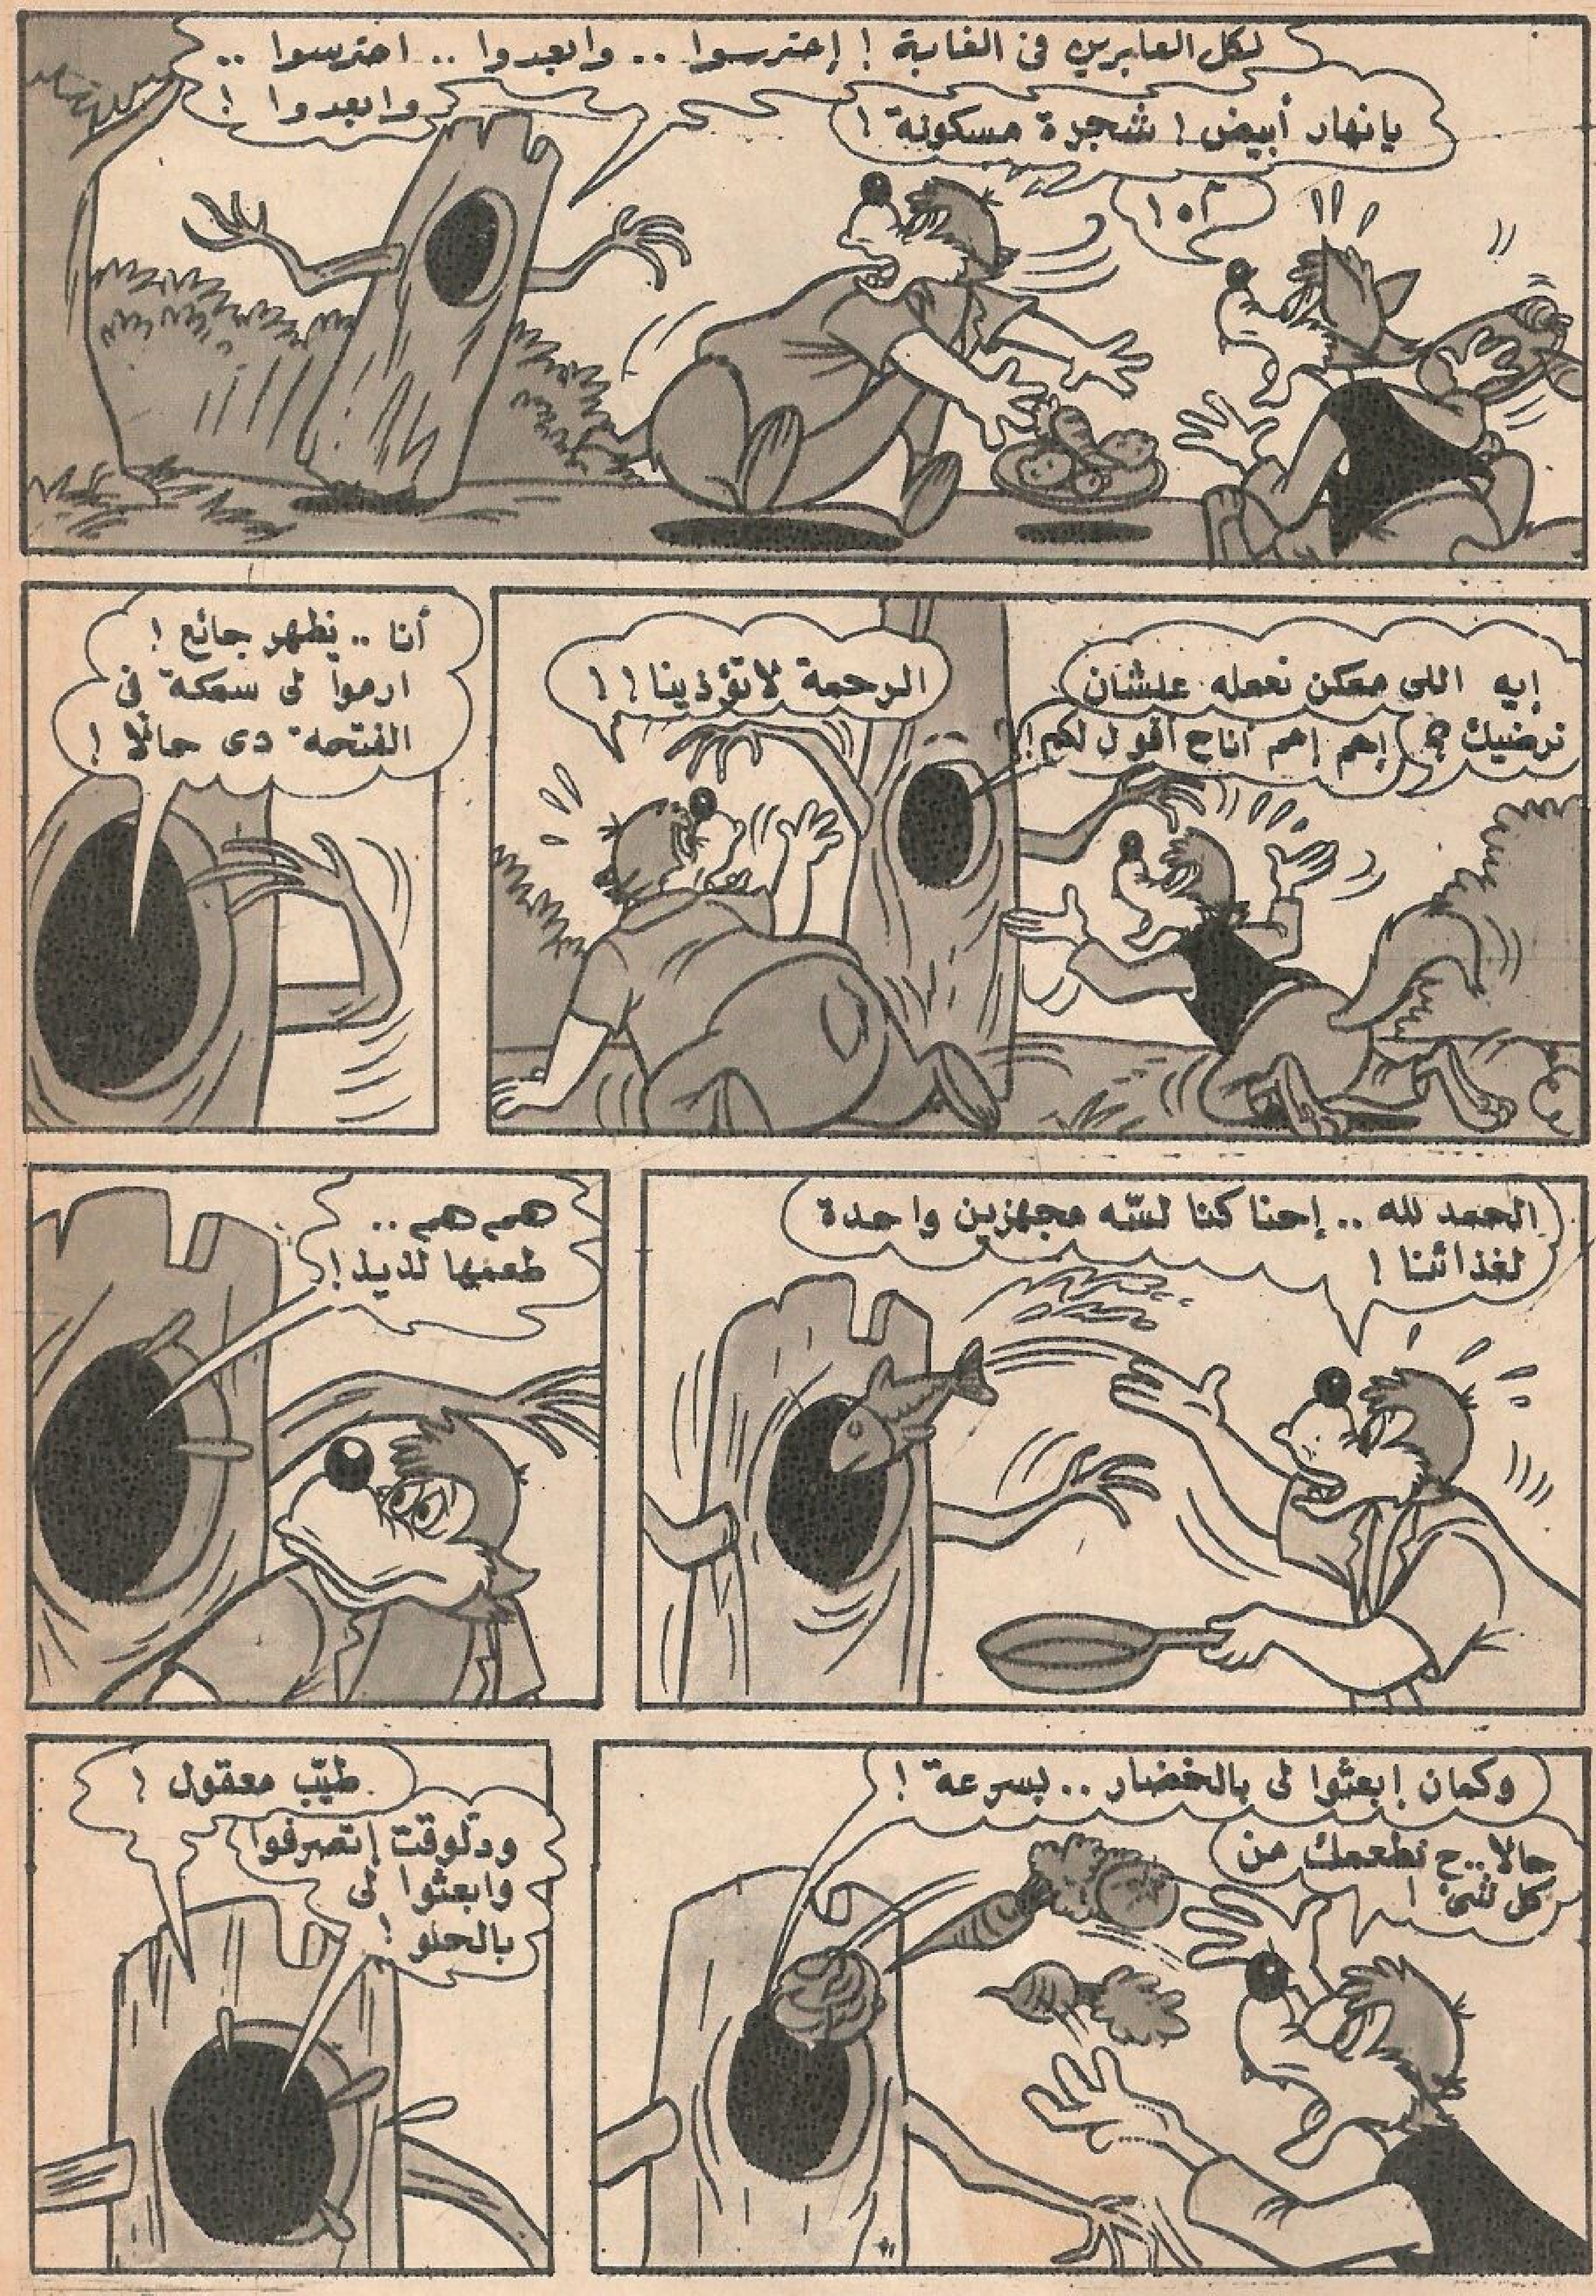 لكل العابرين فى الغابة ! إحترسوا .. وابعدوا .. احترسوا ..
وابعدوا !
يانهار أبيض ! شجرة مسكونة !
إيه اللى ممكن نعمله علشان
نرضيك ؟
إحم إحم أناح أقول لكم !
الرحمة لاتؤذينا ! !
أنا .. يظهر جائع !
ارموا لى سمكة فى
الفتحه دى حالًا !
الحمد لله .. إحنا كنا لسّه مجهزين واحدة
لغذائنا !
هم هم ..
طعمها لذيذ !
وكمان إبعثوا لى بالخضار .. بسرعة !
حالا .. ح نطعمك من
كل شئ !
طيّب معقول !
ودلوقت إتصرفوا
وابعثوا لى
بالحلو !